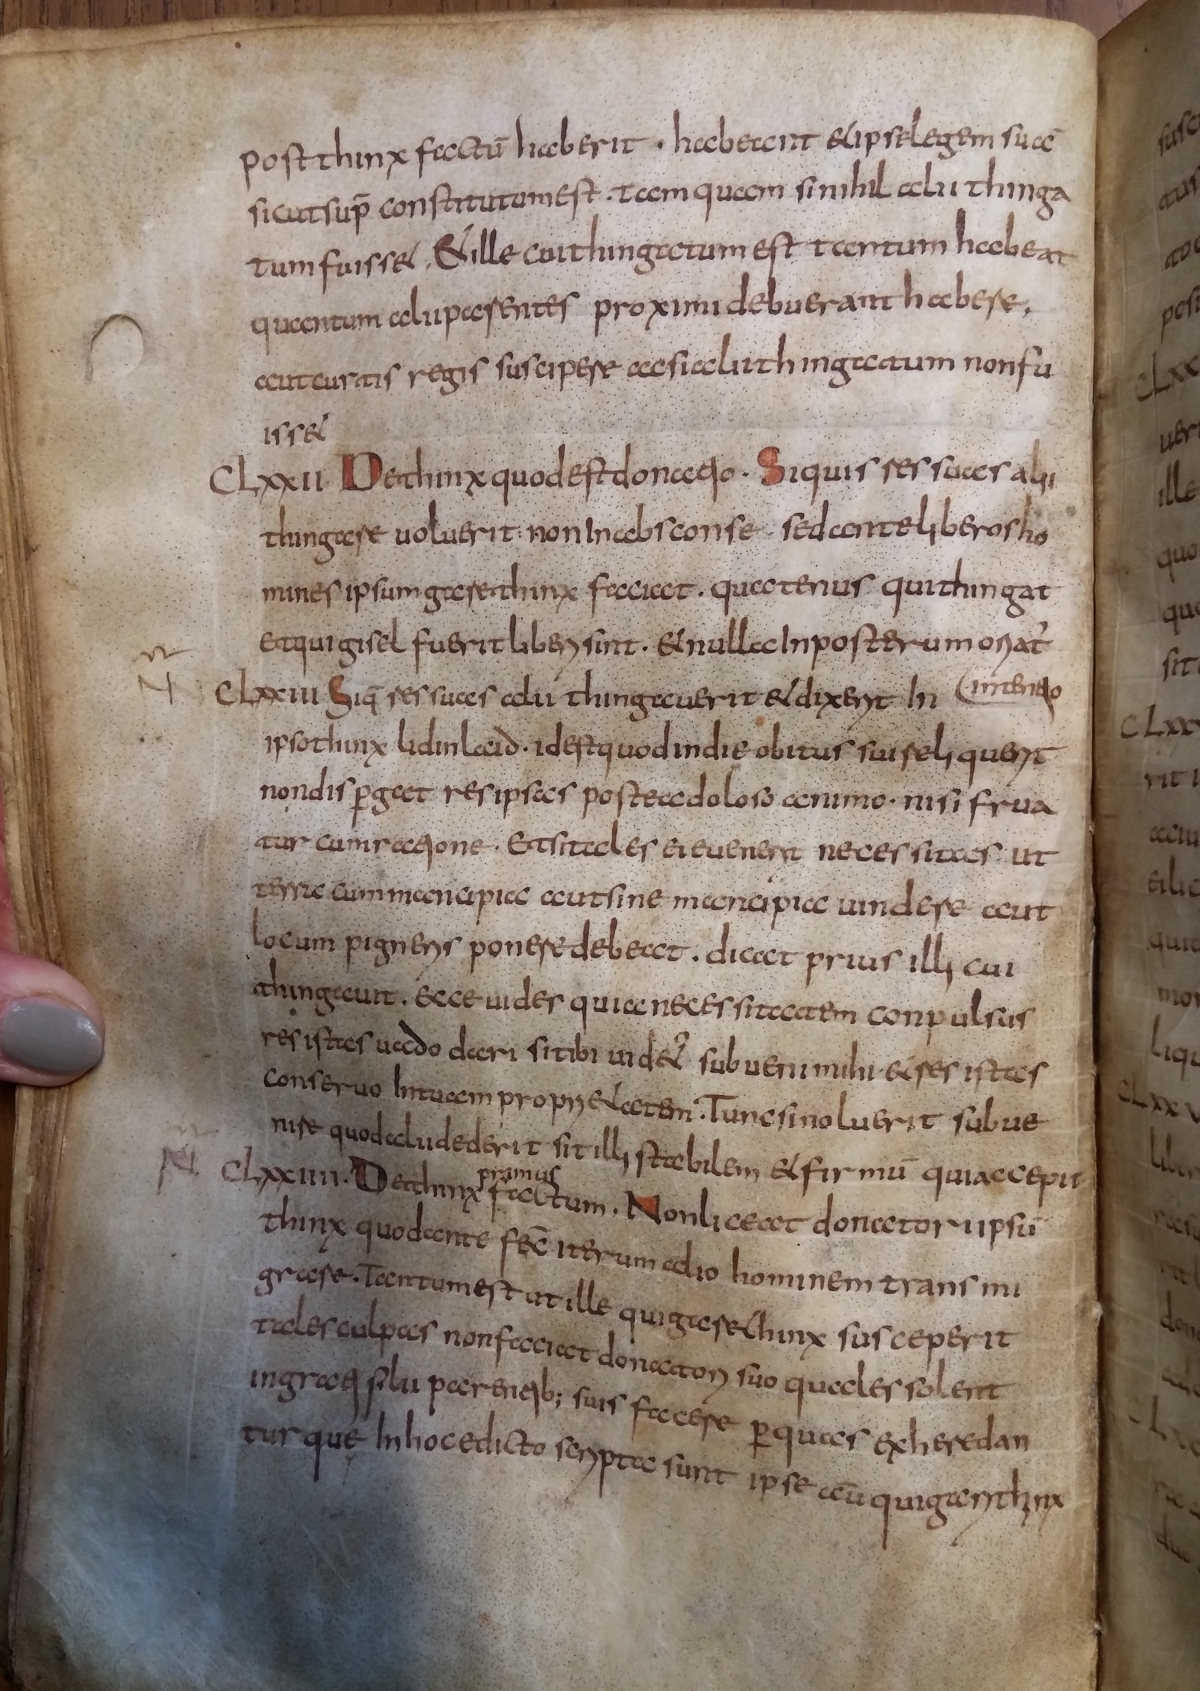 post thinx factū haberit · habeant et ipse legem suā
sicut sup̄ constitutum est · tam quam si nihil alii thinga
tum fuisset · Et ille cui thingatum est tantum habeat
quantum alii parentes proximi debuerant habere,
aut curtis regis suscipere ac si alii thingatum non fu
isset
CLXXII De thinx quod est donatio · Si quis res suas alii
thingare voluerit · non in absconse · sed ante liberos ho
mines ipsum garethinx faciat · quatenus qui thingat
et qui gisel fuerit liberi sint · et nulla in posterum oriat̄
CLXXIII Si q̄ res suas alii thingaverit et dixerit in (intentio
ipso thinx lidinlaid · id est quod in die obitus sui reliquerit
non disꝑgat res ipsas postea doloso animo · nisi frua
tur cum ratione · Et si tales ei evenerit necessitas ut
terra cum mancipia aut sine mancipia vindere aut
locum pigneris ponere debeat · dicat prius illi cui
thingavit · ecce vides quia necessitatem conpulsus
res istas vado dari si tibi videt̄ subveni mihi et res istas
conservo in tuam proprietatem · Tunc si noluerit subve
nire quod alii dederit sit illi stabilem et firmū qui accepit
CLXXIIII · De thinx primus factum · Non liceat donatori ipsū
thinx quod ante fec̄ iterum alio hominem transmi
grare · Tantum est ut ille qui garethinx susceperit
tales culpas non faciat donatori suo quales solent
ingrati filii parentib; suis facere ꝑ quas exheredan
tur que in hoc edicto scripta sunt ipse aū qui garithinx